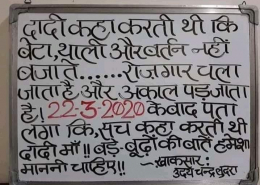 दादी कहा करती थी कि
बेटा, थाली और बर्तन नहीं
बजाते...... रोजगार चला
जाता है और अकाल पड़ जाता
है। 22-3-2020 के बाद पता
लगा कि, सच कहा करती थी
दादी माँ!! बड़े-बूढ़ों की बातें हमेशा
माननी चाहिए!! - खाकसार:
उदय चन्द्र लुथरा